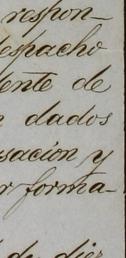 respon-
despacho
dente de
dados
sación y
r forma-
de diez